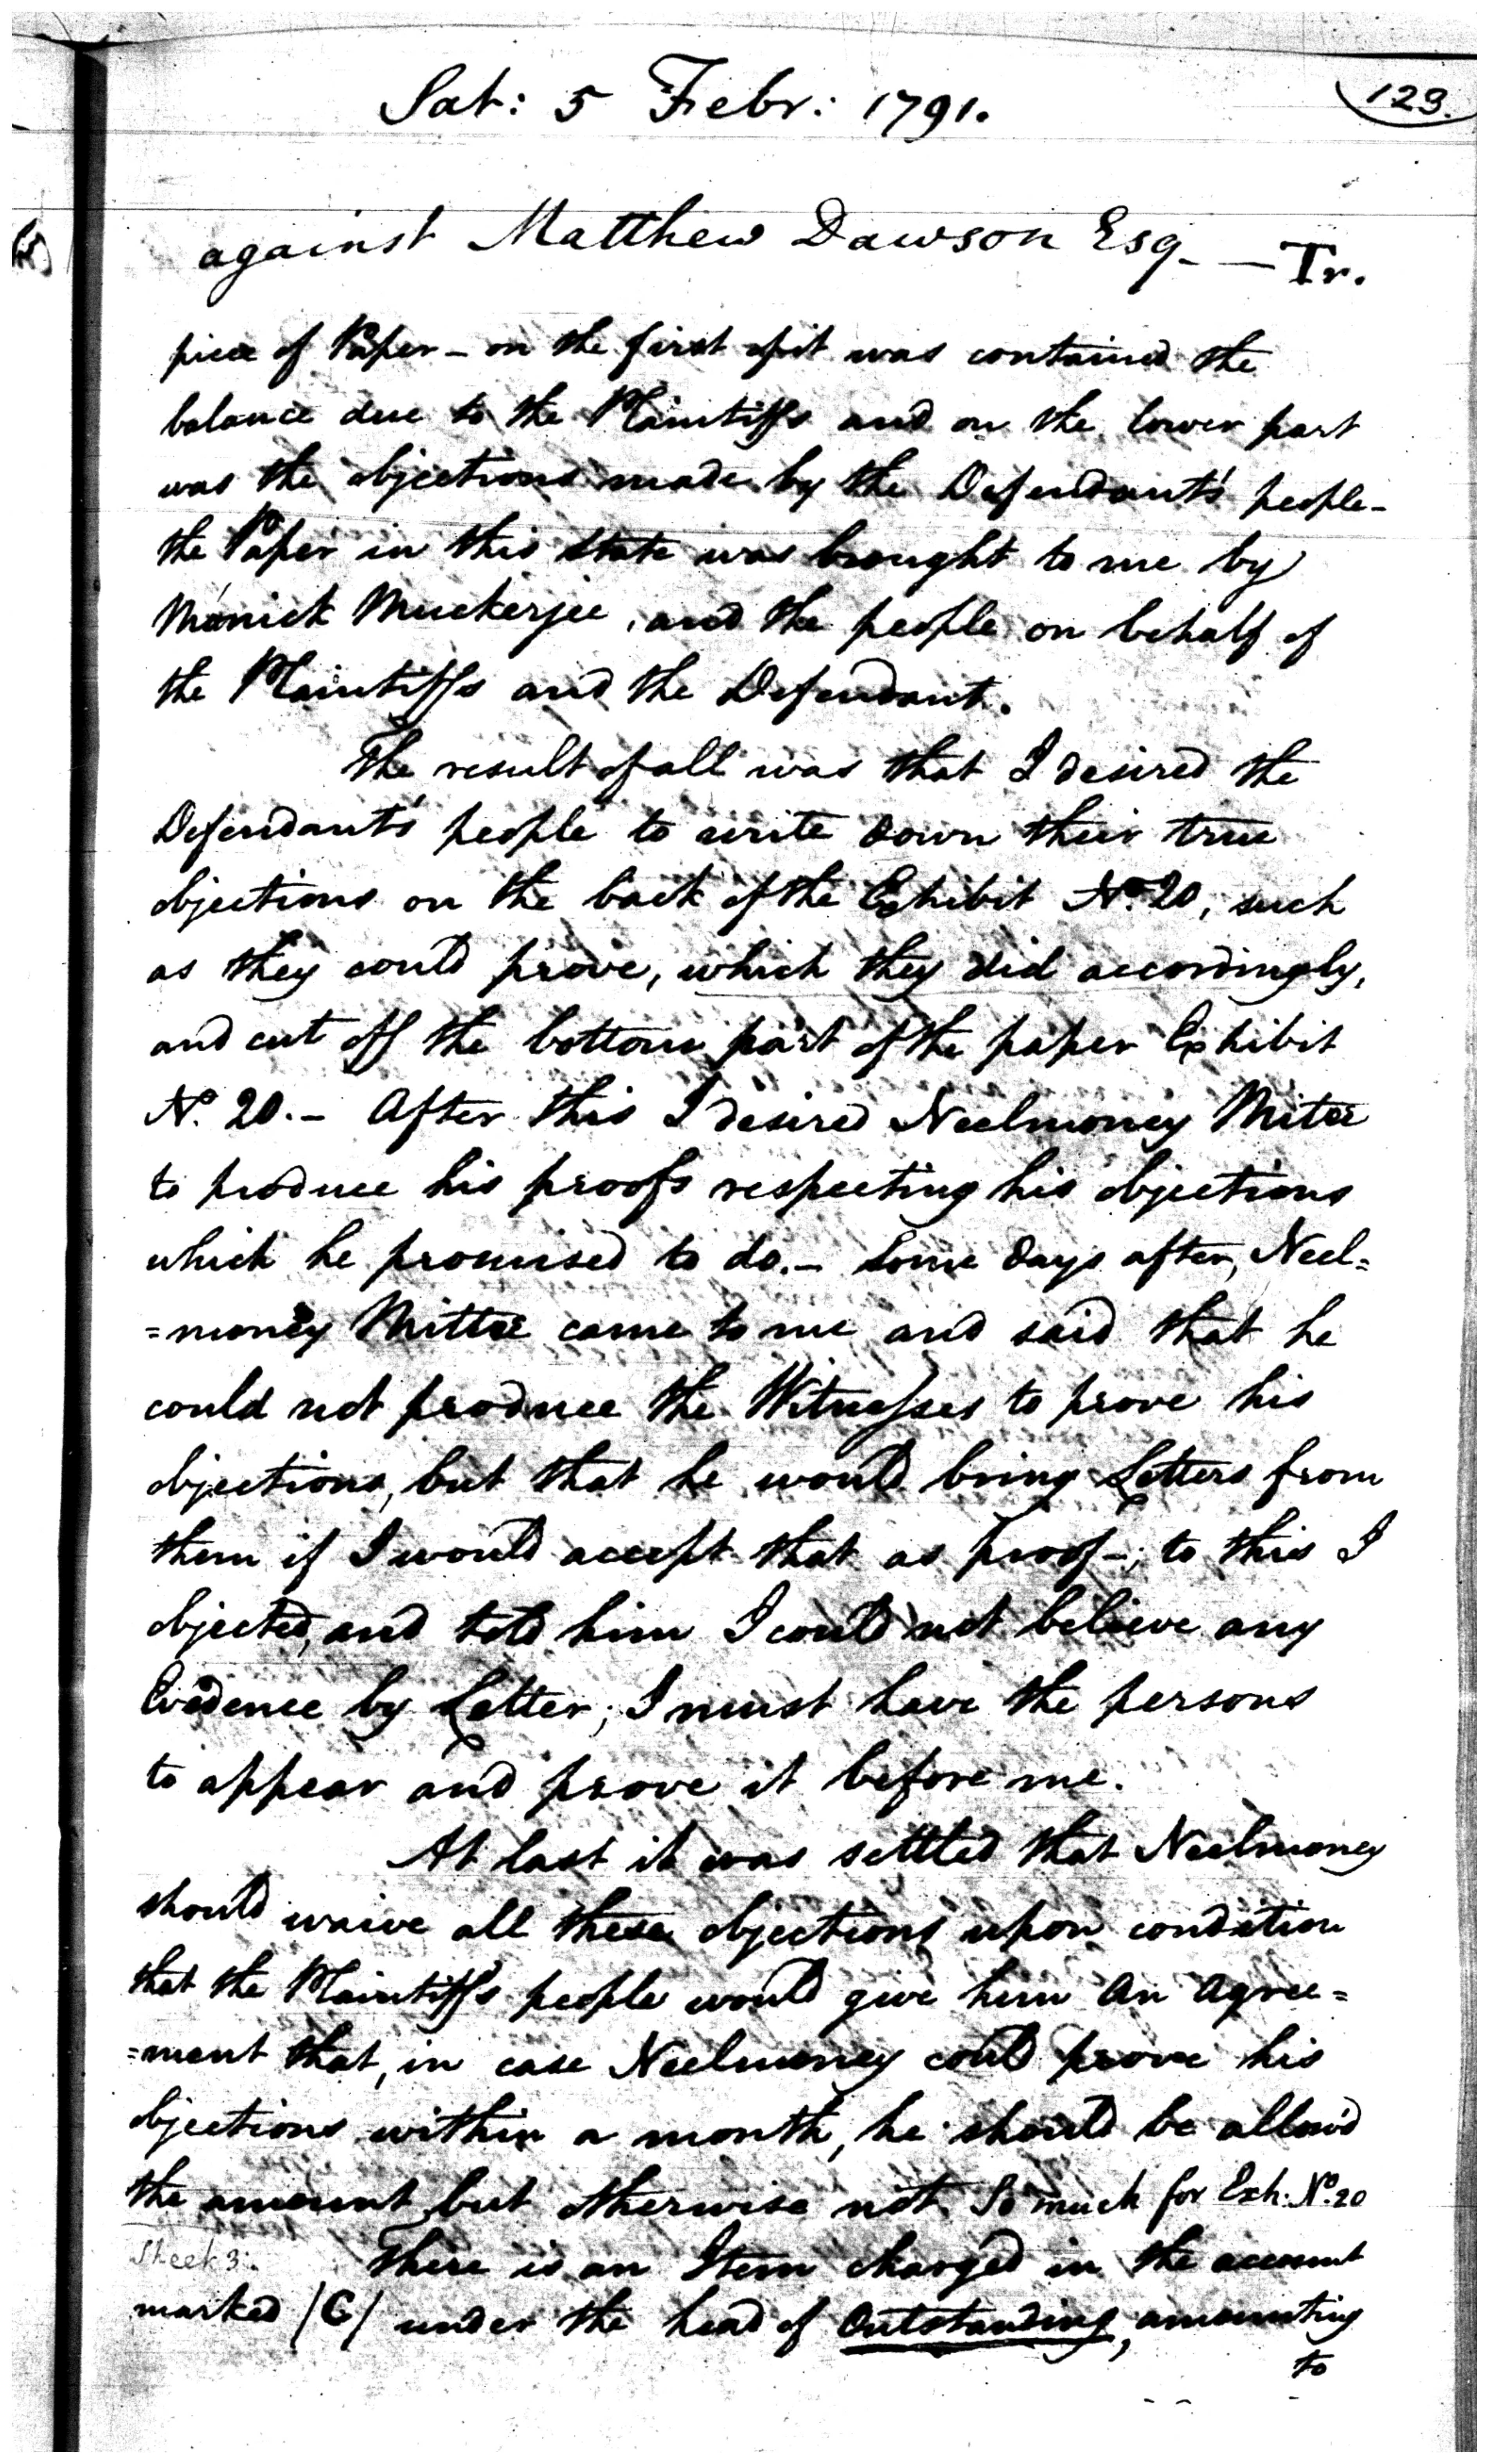 123.
Sat: 5 Febr: 1791.
against Matthew Dawson Esq. — Tr.
piece of Paper – on the first of it was contained the
balance due to the Plaintiffs and on the lower part
was the objections made by the Defendant's people –
the Paper in this state was brought to me by
Manick Muckerjee, and the people on behalf of
the Plaintiffs and the Defendant.
The result of all was that I desired the
Defendant's people to write down their true
objections on the back of the Exhibit No. 20, such
as they could prove, which they did accordingly,
and cut off the bottom part of the paper Exhibit
No. 20. – After this I desired Neelmoney Miter
to produce his proofs respecting his objections
which he promised to do. – Some days after, Neel=
=money Mitter came to me and said that he
could not produce the Witnesses to prove his
objections, but that he would bring Letters from
them if I would accept that as proof –; to this I
objected, and told him I could not believe any
Evidence by Letter; I must have the persons
to appear and prove it before me.
At last it was settled that Neelmoney
should waive all these objections upon condition
that the Plaintiff's people would give him an agree=
=ment that, in case Neelmoney could prove his
objections within a month, he should be allow'd
the amount but otherwise not. So much for Exh: No. 20
Sheet 3:.
There is an Item charged in the account
marked /G/ under the head of Outstanding, amounting
to